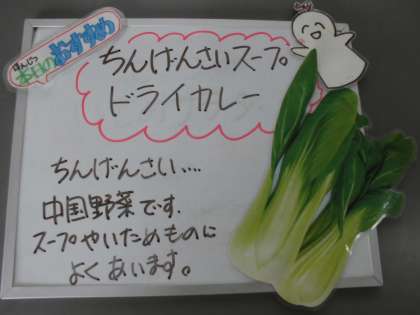 ほんじつ
本日のおすすめ
ちんげんさいスープ
ドライカレー
ちんげんさい....
中国野菜です.
スープやいためものに
よくあいます。